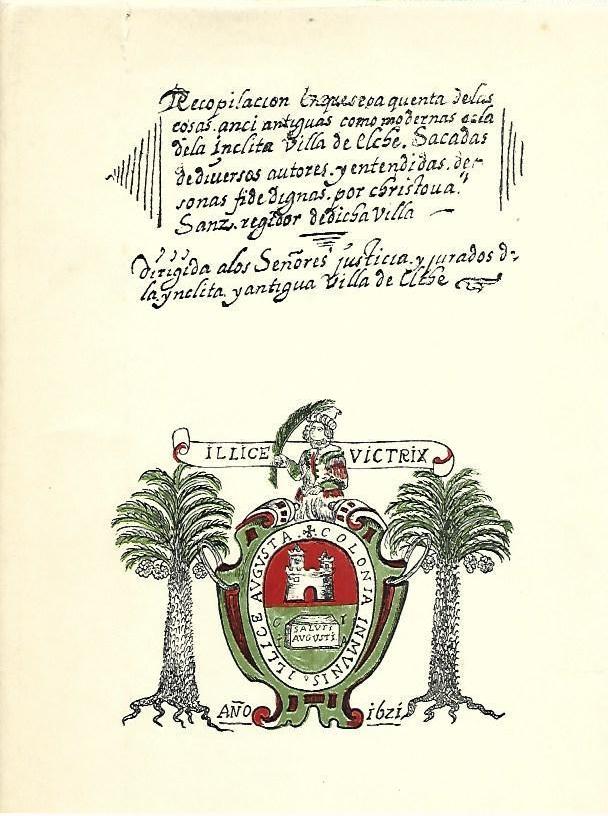 Recopilacion Enquesepa quenta delas
cosas. anci antiguas como modernas dela
dela ínclita villa de Elche. Sacadas
de diversos autores. y entendidas. de per
sonas fide dignas. por christova.l
Sanz. regidor dedicha villa
Dirigida alos Señores justicia. y jurados d-
la. ynclita. y antigua Villa de Elche
ILLICE VICTRIX
COLONIA INMVNIS. ILLICE AVGVSTA.
C I
I A
SALVTI
AVGVSTI
AÑO 1621